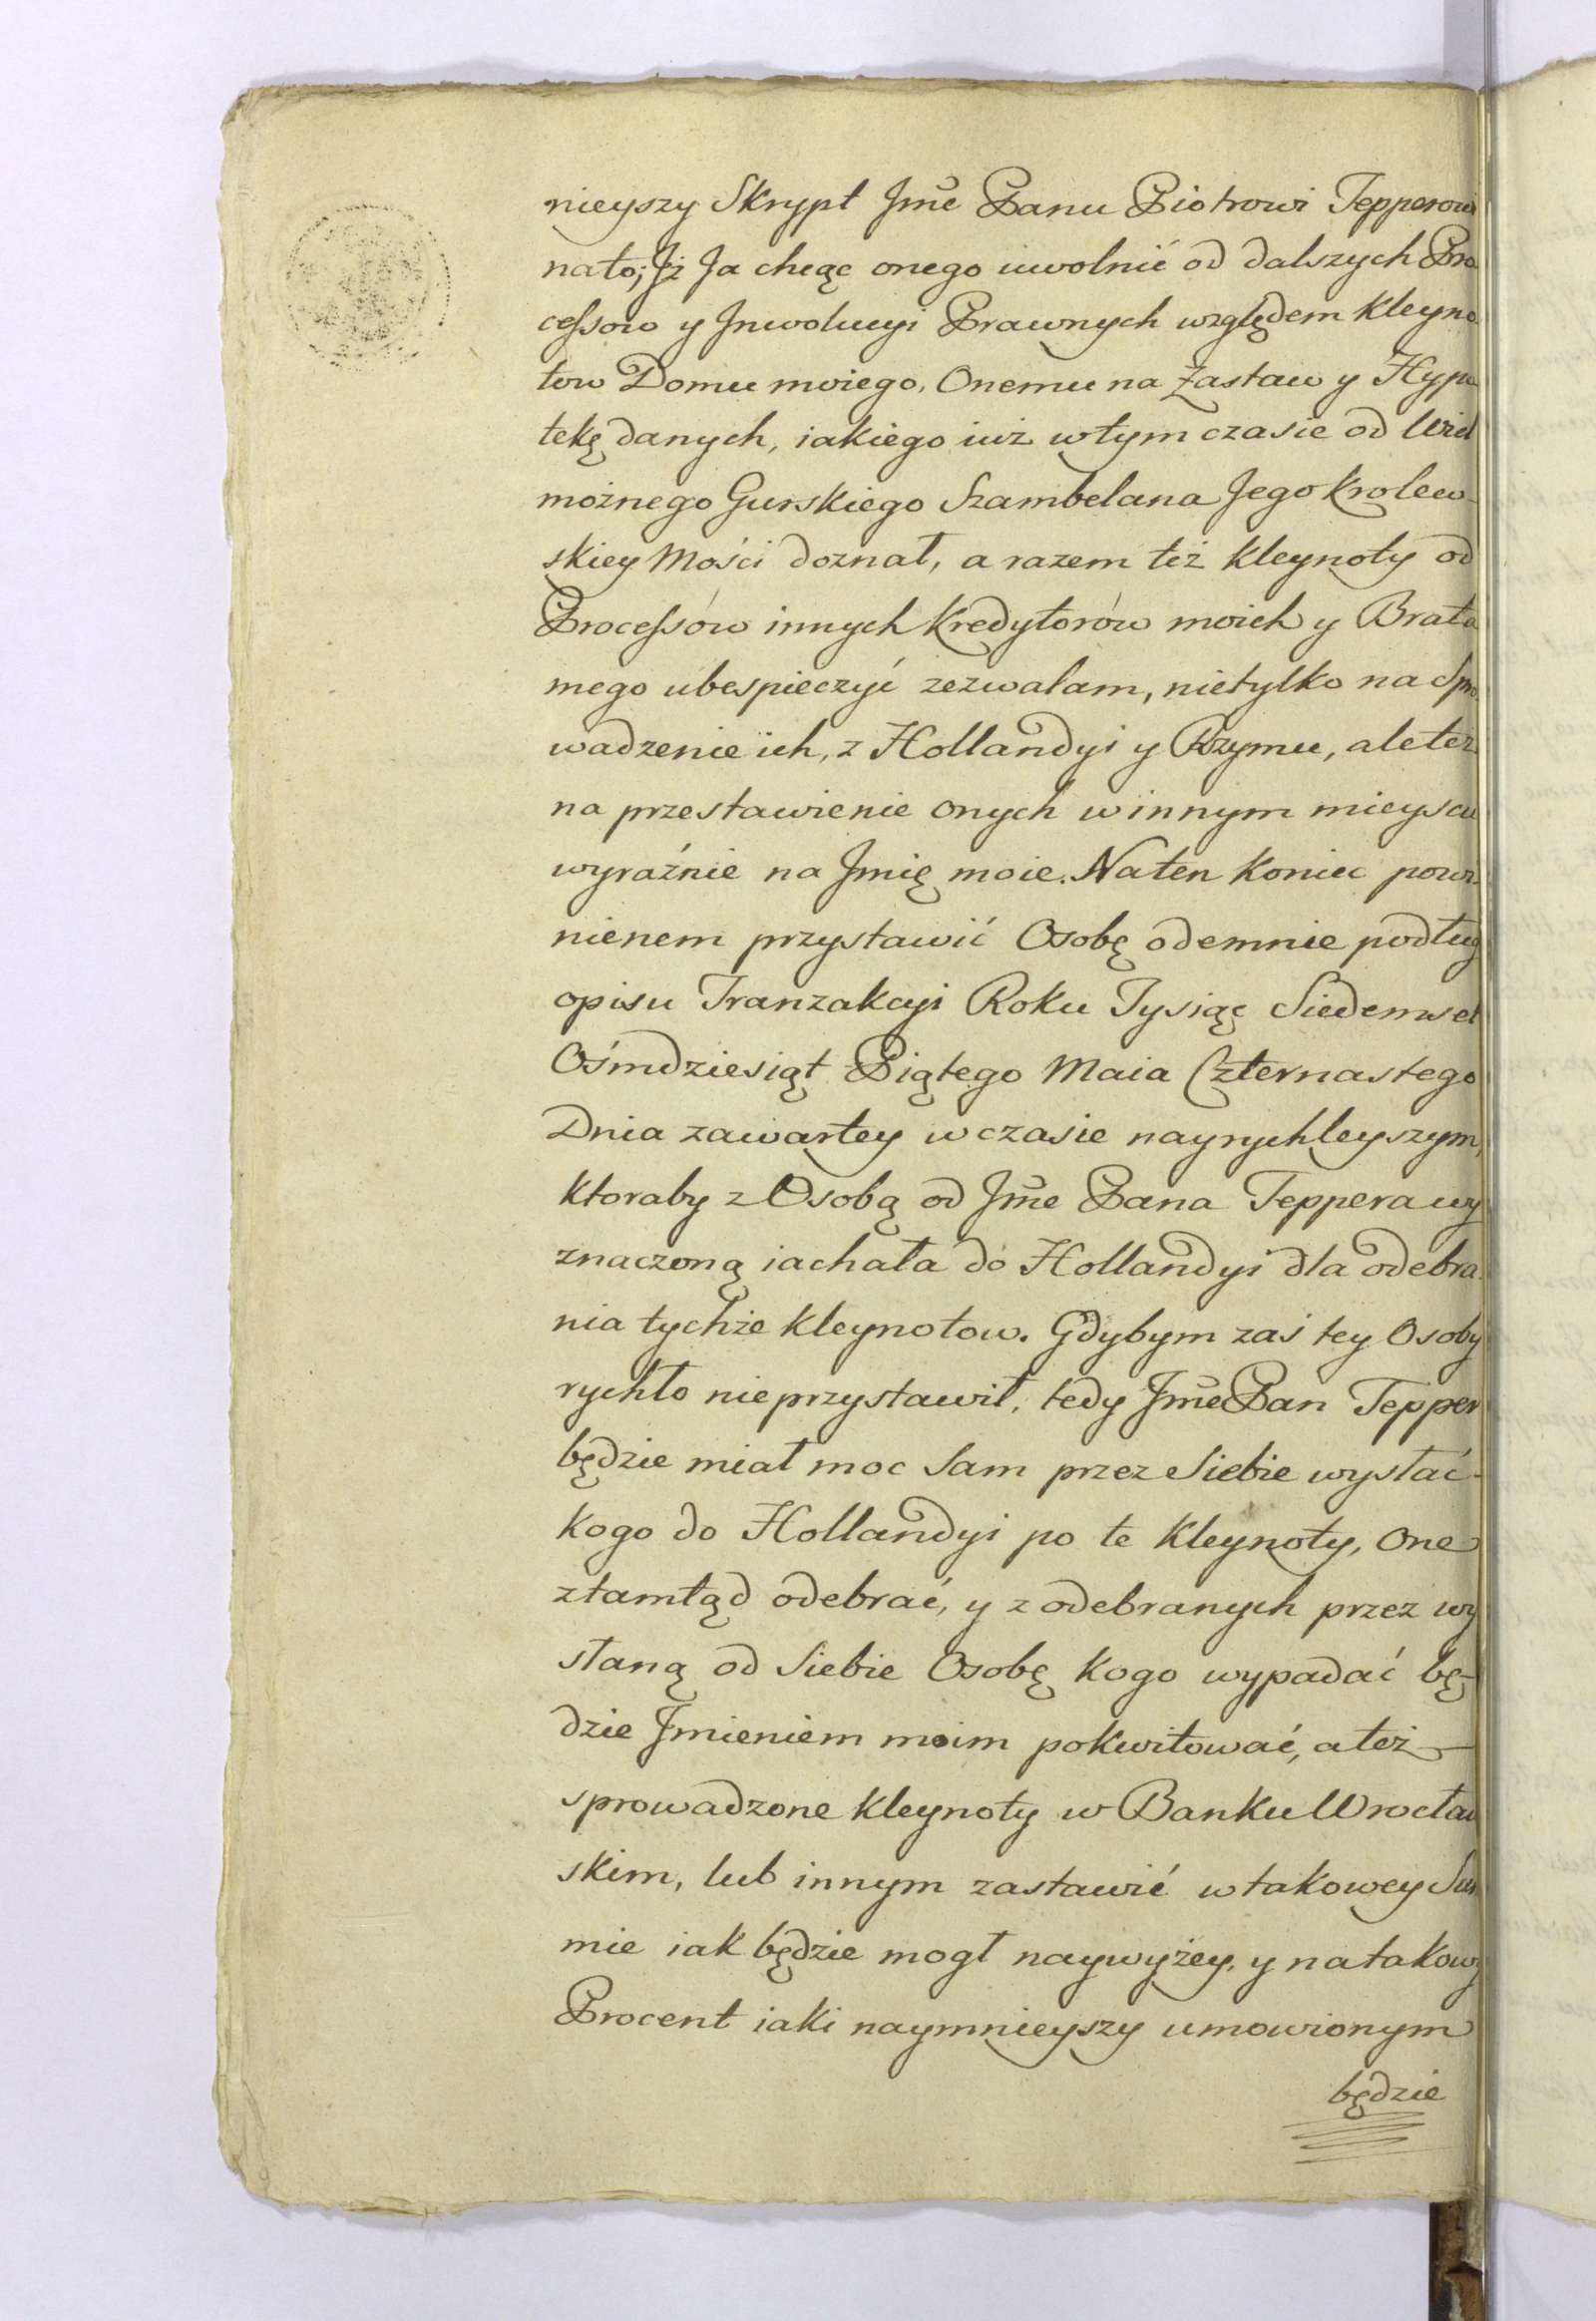 nieyszy Skrypt Jmc̃ Panu Piotrowi Tepperowi
nato; Jż Ja chcąc onego uwolnić od dalszych Pro
cessow y Jnwolucyi Prawnych względem Kleyno
tow Domu moiego, Onemu na Zastaw y Hypo
tekę danych, iakiego iuż wtym czasie od Wiel
możnego Gurskiego Szambelana Jego Krolew-
skiey Mości doznał, a razem też Kleynoty od
Processów innych Kredytorów moich y Brata
mego ubespieczyć zezwalam, nietylko na Spro
wadzenie ich, z Hollandyi y Rzymu, ale też
na przestawienie onych w innym mieyscu
wyraźnie na Jmię moie. Na ten koniec powi
nienem przystawić Osobę odemnie podług
opisu Tranzakcyi Roku Tysiąc Siedemset
Ośmdziesiąt Piątego Maia Czternastego
Dnia zawartey w czasie nayrychleyszym,
ktoraby z Osobą od Jmc̃ Pana Teppera wy
znaczoną iachała do Hollandyi dla odebra
nia tychże Kleynotow. Gdybym zaś tey Osoby
rychło nie przystawił, tedy Jmc̃ Pan Tepper
będzie miał moc Sam przez Siebie wysłać
kogo do Hollandyi po te Kleynoty, One
ztamtąd odebrać, y z odebranych przez wy
słaną od Siebie Osobę kogo wypadać bę-
dzie Jmieniem moim pokwitować, a też
sprowadzone Kleynoty w Banku Wrocław
skim, lub innym zastawić w takowey Sum
mie iak będzie mogł naywyżey, y na takowy
Procent iaki naymnieyszy umowionym
będzie